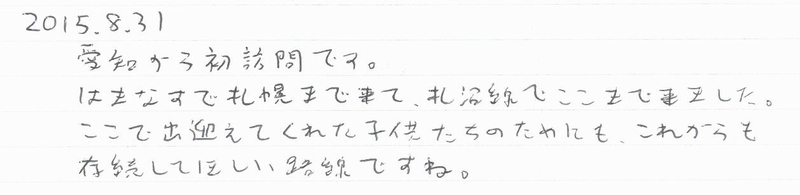 2015.8.31
愛知から初訪問です。
はまなすで札幌まで来て、札沼線でここまで来ました。
ここで出迎えてくれた子供たちのためにも、これからも
存続してほしい路線ですね。